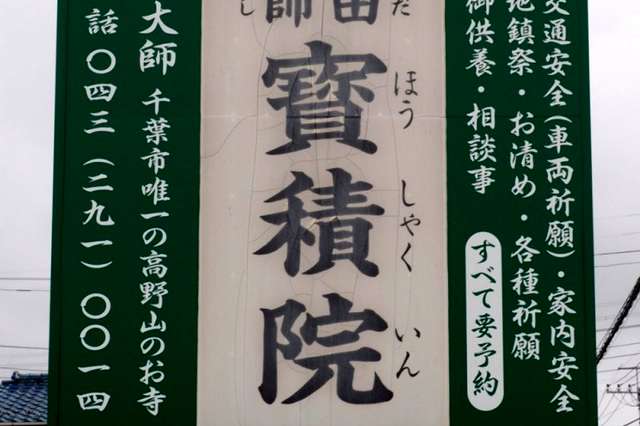 交通安全(車両祈願)・家内安全
地鎮祭・お清め・各種祈願
御供養・相談事
すべて要予約
だ
し
田
師
寶積院
ほう しゃく いん
大師 千葉市唯一の高野山のお寺
話 〇四三(二九一)〇〇一四